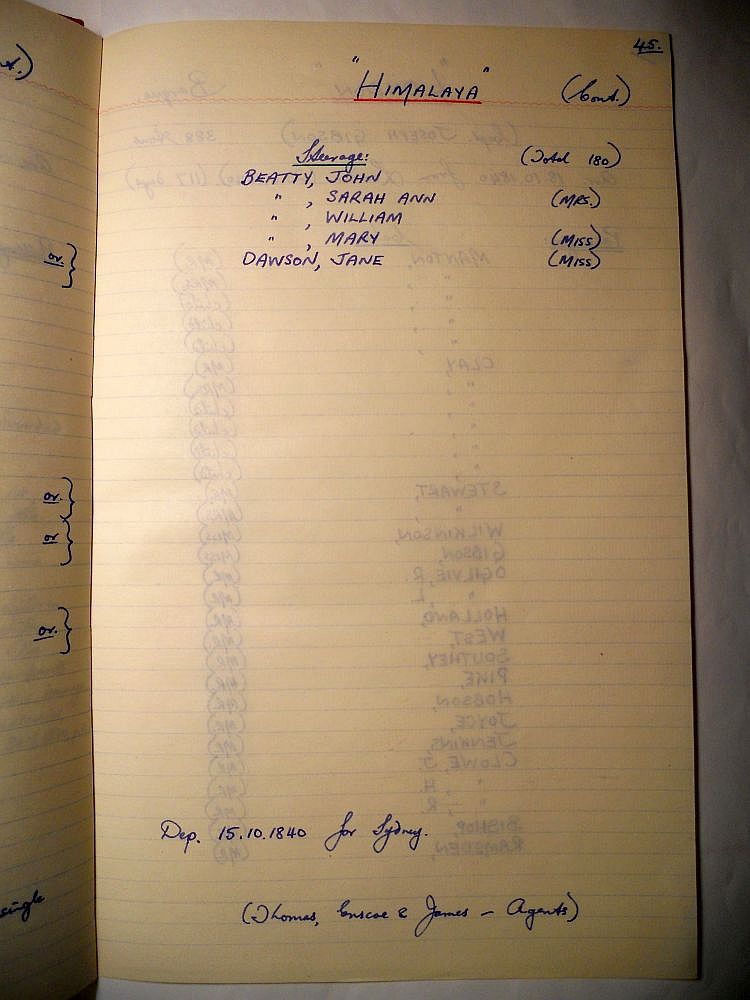 45.
"HIMALAYA" (Cont.)
Steerage: (Total 180)
BEATTY, JOHN
" , SARAH ANN (MRS.)
" , WILLIAM
" , MARY (MISS)
DAWSON, JANE (MISS)
Dep. 15.10.1840 for Sydney.
(Thomas, Enscoe & James - Agents)
t.)
or.
or.
or
or.
single